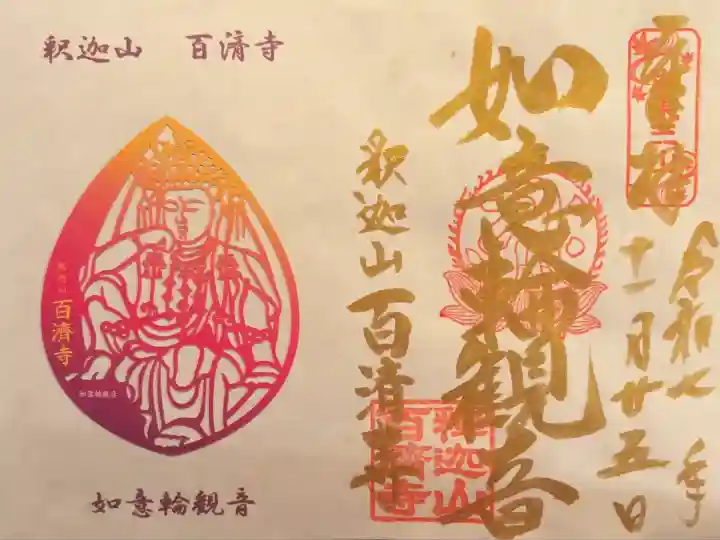 釈迦山 百済寺
百濟寺
如意輪観音
如意輪観音
奉拝
令和七年
十一月廿五日
如意輪観音
釈迦山百済寺
釈迦山
百濟寺